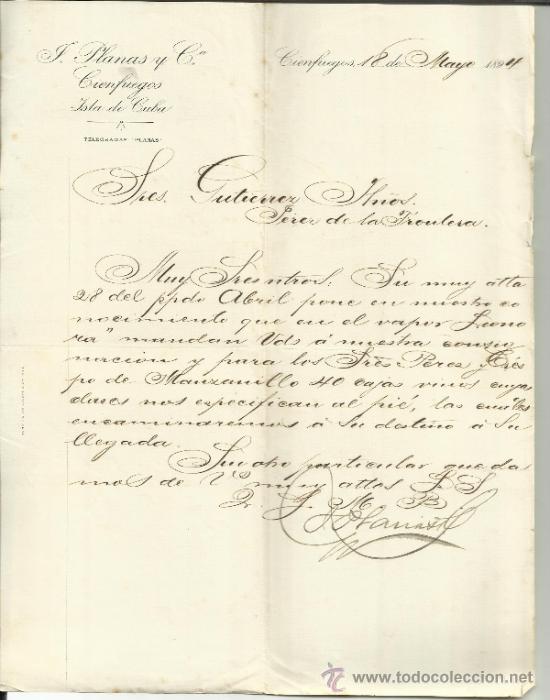 J. Planas y Cª
Cienfuegos
Isla de Cuba
TELEGRAMAS "PLANAS"
Cienfuegos, 18 de Mayo 1894
Sres. Gutierrez Hños.
Jerez de la Frontera.
Muy Sres ntros: Su muy atta
28 del ppdo Abril pone en nuestro co
nocimiento que en el vapor "Leono
ra" mandan Vds á nuestra consig
nación y para los Sres Perez y Cres
po de Manzanillo 40 cajas vinos cuyas
clases nos especifican al pié, las cuales
encaminaremos á su destino á su
llegada.
Sin otro particular queda
mos de Vs muy attos S S
Q. S. M. B.
J Planas y Cª
www.todocoleccion.net